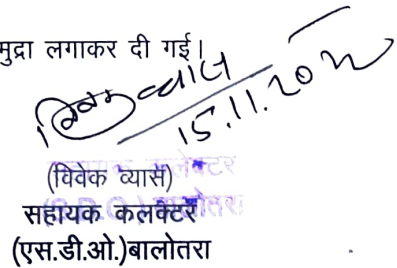 मुद्रा लगाकर दी गई।
15.11.2022
(विवेक व्यास)
सहायक कलक्टर
(एस.डी.ओ.)बालोतरा